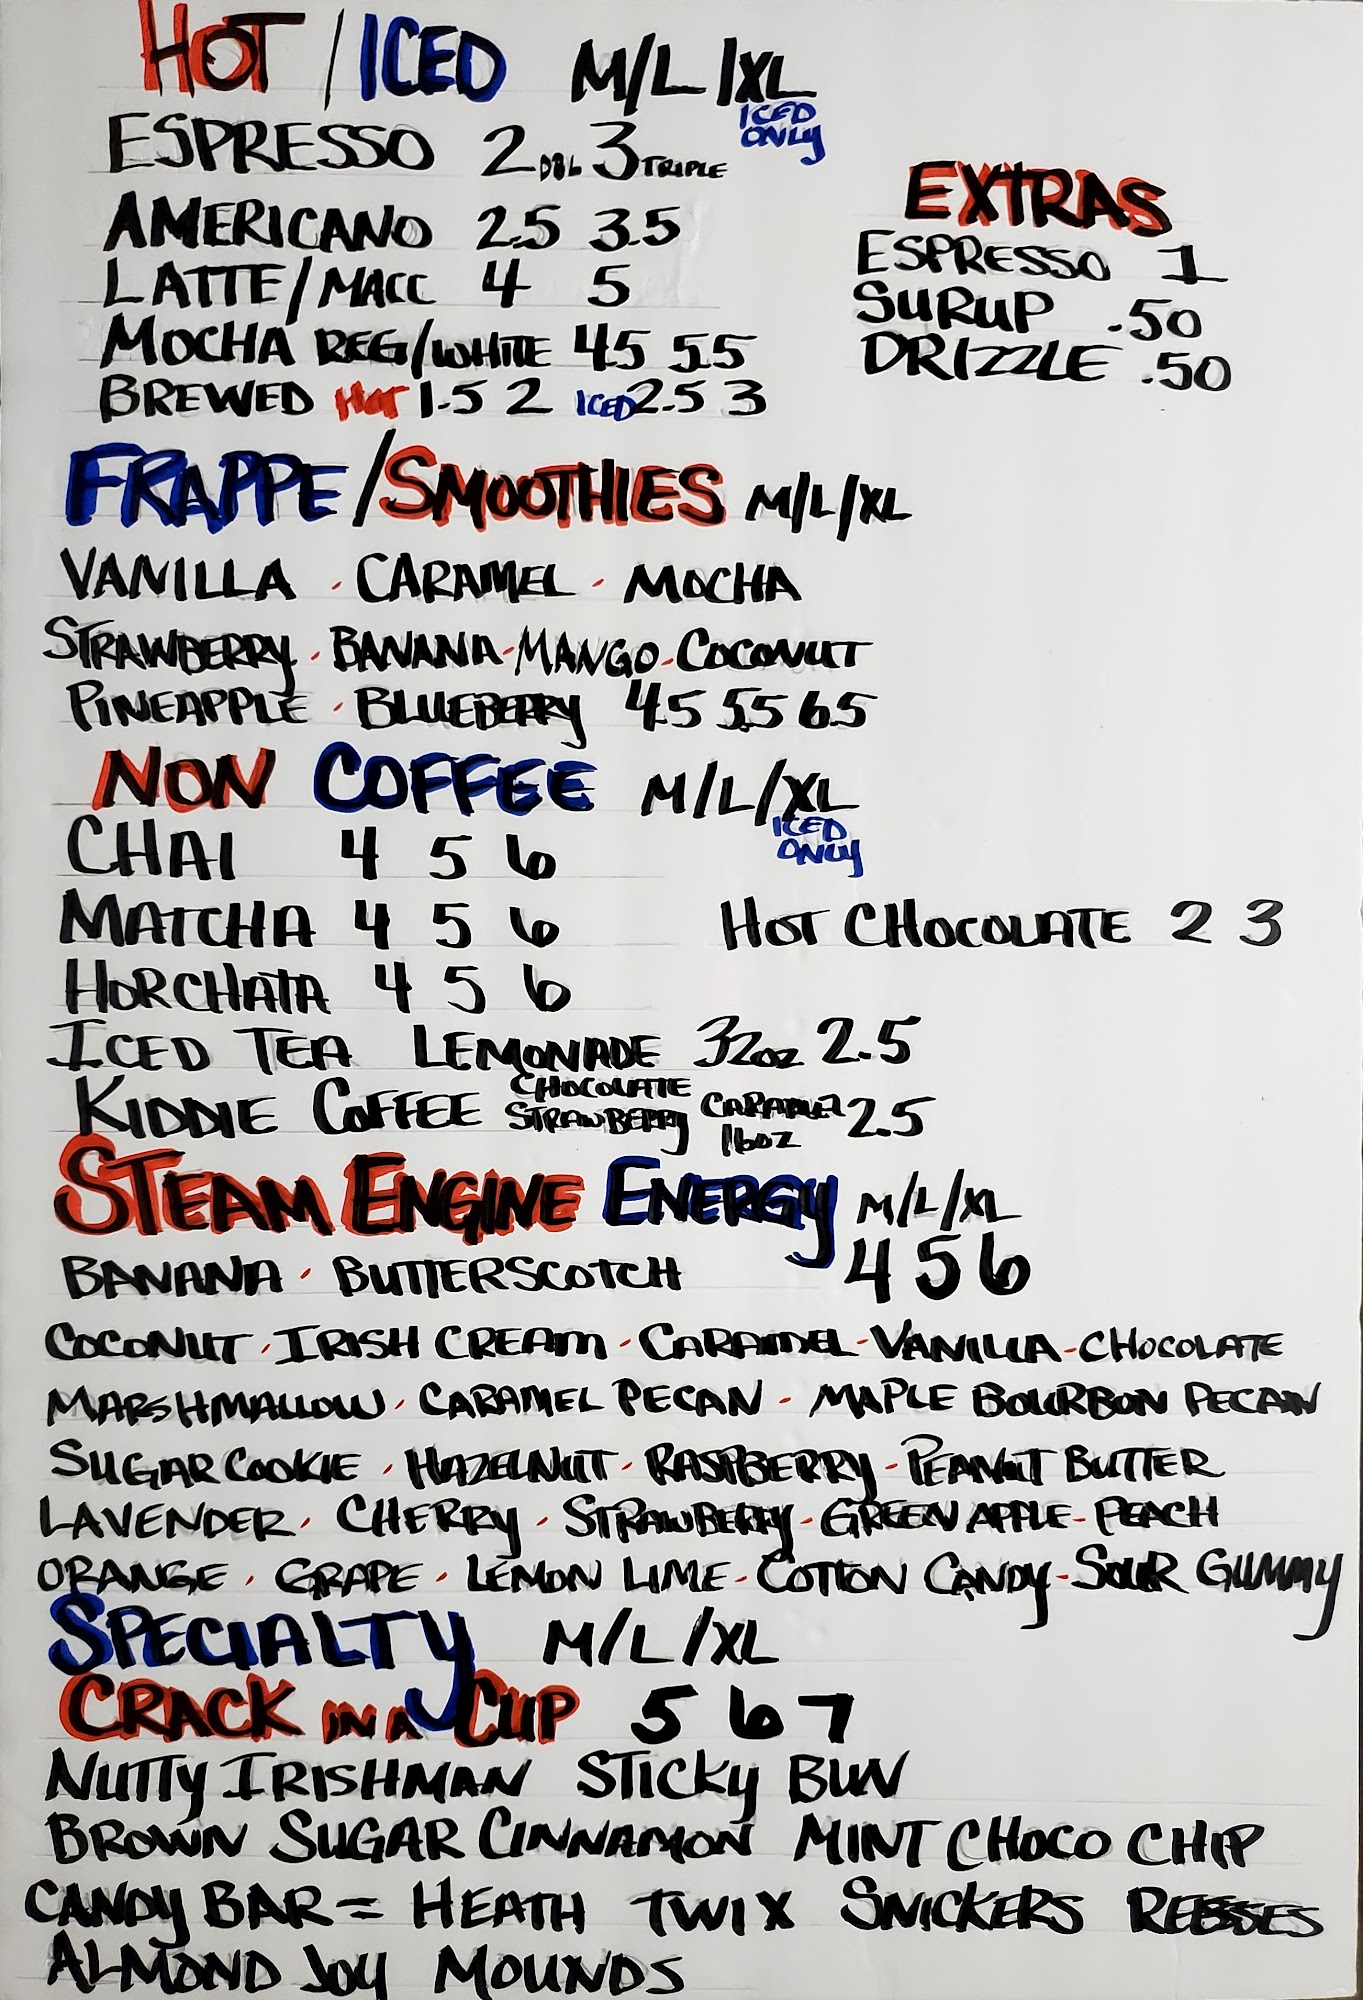 HOT / ICED M/L/XL
ICED
ONLY
ESPRESSO 2 DBL 3 TRIPLE
AMERICANO 2.5 3.5
LATTE/MACC 4 5
MOCHA REG/WHITE 4.5 5.5
BREWED HOT 1.5 2 ICED 2.5 3
EXTRAS
ESPRESSO 1
SURUP .50
DRIZZLE .50
FRAPPE/SMOOTHIES M/L/XL
VANILLA · CARAMEL · MOCHA
STRAWBERRY · BANANA - MANGO - COCONUT
PINEAPPLE · BLUEBERRY 4.5 5.5 6.5
NON COFFEE M/L/XL
ICED
ONLY
CHAI 4 5 6
MATCHA 4 5 6 HOT CHOCOLATE 2 3
HORCHATA 4 5 6
ICED TEA LEMONADE 32oz 2.5
KIDDIE COFFEE CHOCOLATE STRAWBERRY CARAMEL 16oz 2.5
STEAM ENGINE ENERGY M/L/XL
BANANA · BUTTERSCOTCH 4 5 6
COCONUT · IRISH CREAM · CARAMEL - VANILLA - CHOCOLATE
MARSHMALLOW · CARAMEL PECAN · MAPLE BOURBON PECAN
SUGAR COOKIE · HAZELNUT · RASPBERRY - PEANUT BUTTER
LAVENDER · CHERRY · STRAWBERRY - GREEN APPLE - PEACH
ORANGE · GRAPE · LEMON LIME - COTTON CANDY - SOUR GUMMY
SPECIALTY M/L/XL
CRACK IN A CUP 5 6 7
NUTTY IRISHMAN STICKY BUN
BROWN SUGAR CINNAMON MINT CHOCO CHIP
CANDY BAR = HEATH TWIX SNICKERS REESES
ALMOND JOY MOUNDS